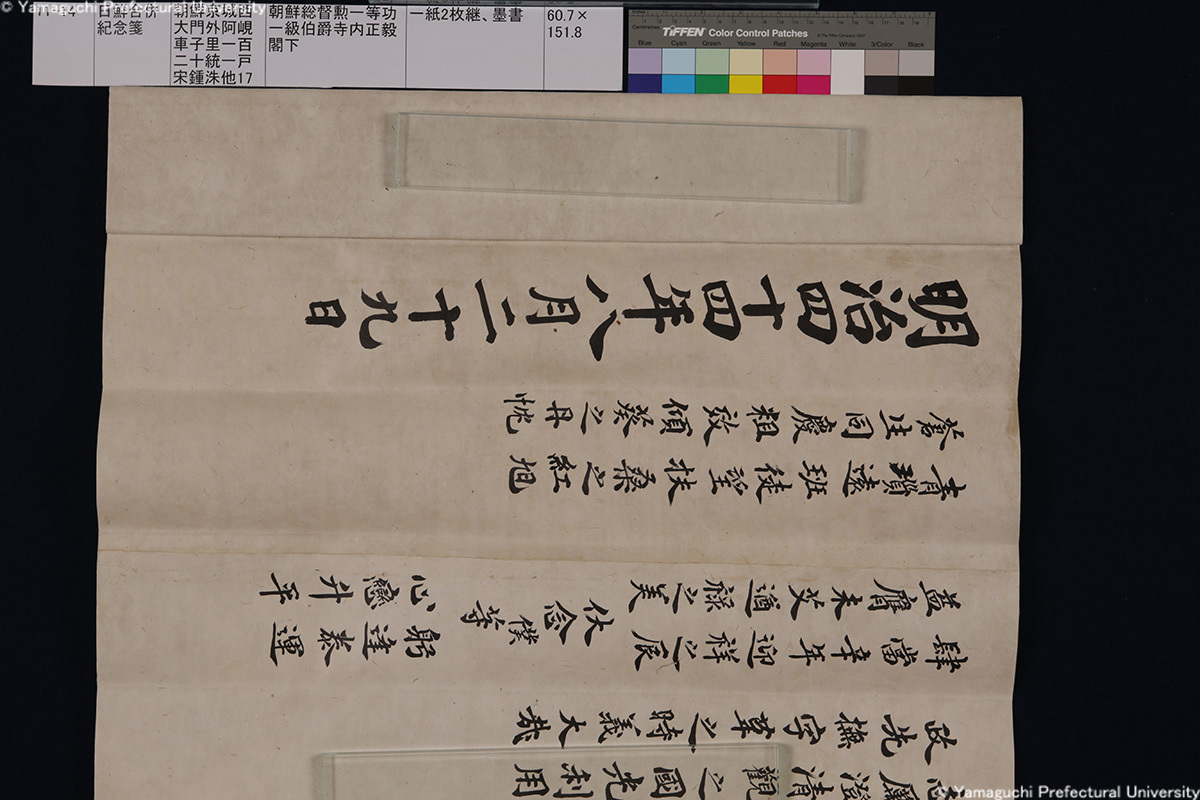 © Yamaguchi Prefectural University
日鮮合併
紀念箋
朝鮮京城西
大門外阿峴
車子里一百
二十統一戸
宋鍾洙他17
朝鮮総督勲一等功
一級伯爵寺内正毅
閣下
一紙2枚継、墨書
60.7×
151.8
TIFFEN Color Control Patches
Blue Cyan Green Yellow Red Magenta White 3/Color Black
廉澄清觀之國光利用
政先撫字革之時義大哉
肆當辛年迎祥之辰
益膺未艾遒祿之美
伏念僕等
躬逢泰運
心戀升平
青瑣遠班徒望扶桑之紅旭
蒼生同慶粗效傾葵之丹忱
明治四十四年八月二十九日
© Yamaguchi Prefectural University